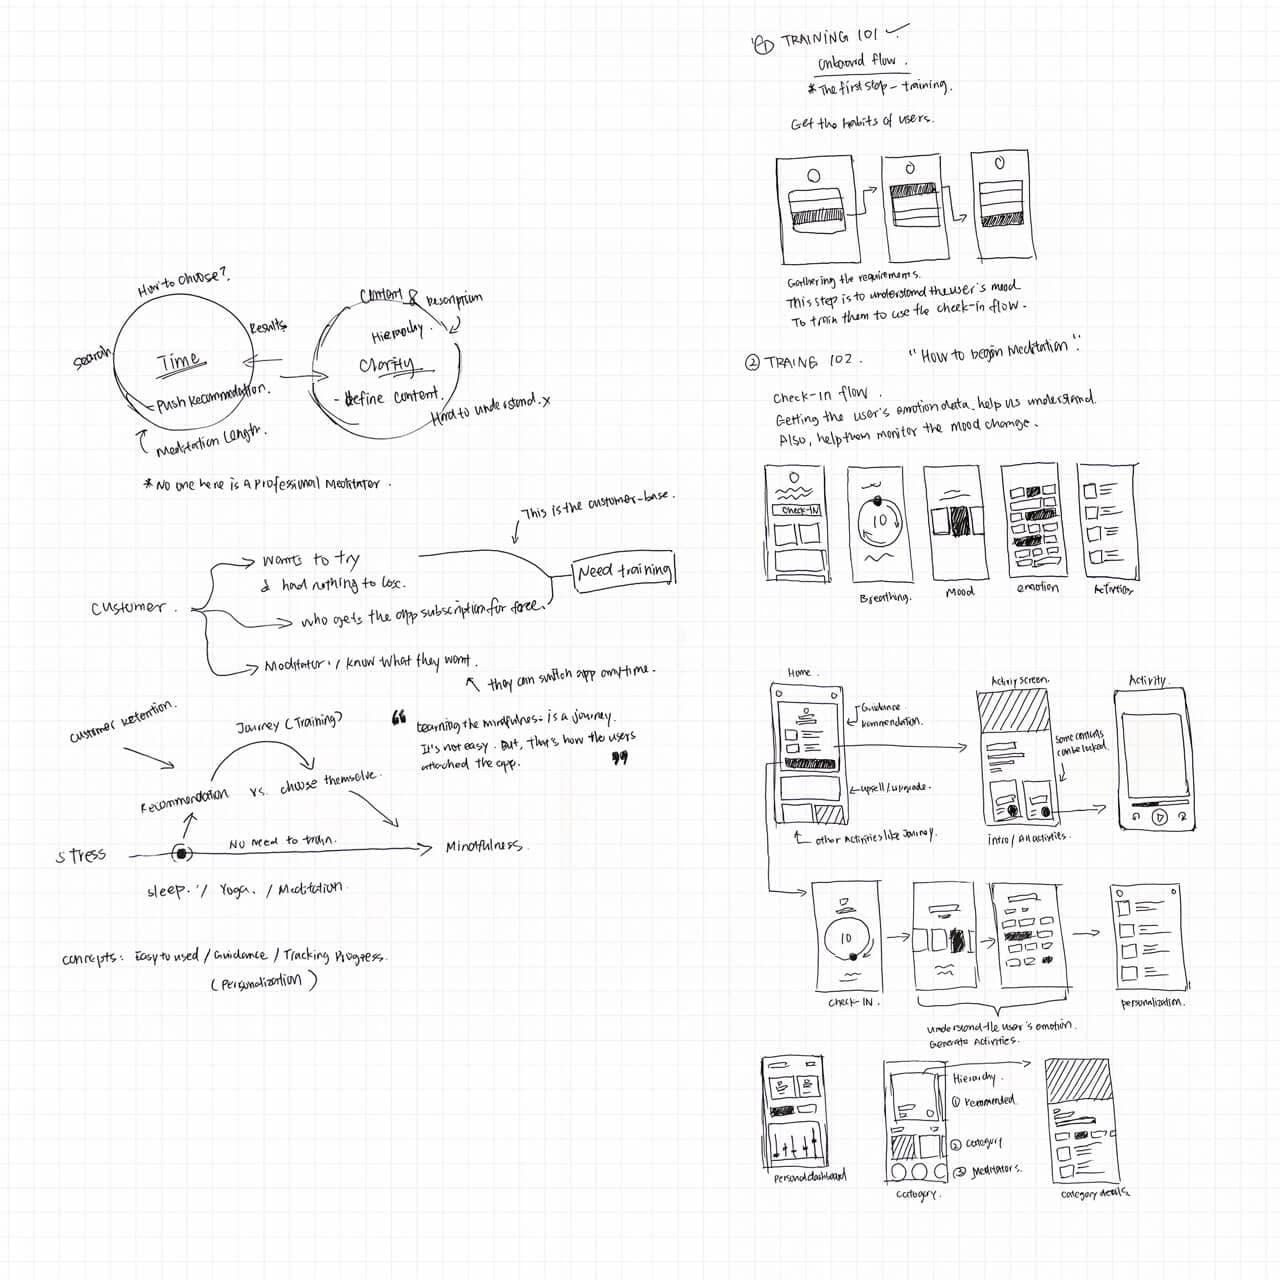 How to choose?
Search
Results
Time
- Push Recommodation.
Meditation Length.
Content & Description
Hierachy.
Clarity
- Define Content.
Hard to understand. x
* No one here is a Professional Meditator.
This is the customer-base.
Customer.
wants to try
& had nothing to lose.
who gets the app subscription for free.
Need training
Meditator. / know what they want.
they can switch app anytime.
Customer Retention.
Journey (Training)
Recommendation vs. choose themselve.
“ Learning the mindfulness is a journey.
It's not easy. But, That's how the users
attached the app. ”
Stress
No need to train.
Mindfulness.
Sleep. / Yoga. / Meditation.
Concepts: Easy to used / Guidance / Tracking Progress.
(Personalization)
① TRAINING 101
Onboard flow.
* The first step - training.
Get the habits of users.
Gathering the requirements.
This step is to understand the user's mood
To train them to use the check-in flow.
② TRAING 102. "How to begin Meditation".
Check-in flow.
Getting the user's emotion data, help us understand.
Also, help them monitor the mood change.
Check-IN
10
Breathing.
Mood
emotion
Activities
Home.
Guidance
Activity screen.
Some contents
can be locked.
Activity.
upsell / upgrade.
other Activities like Journey.
intro / All activities.
10
Check-IN.
understand the user's emotion.
Generate Activities.
personalization.
Personal dashboard
Hierachy.
① recommended.
② category
③ Meditators.
Category.
Category details